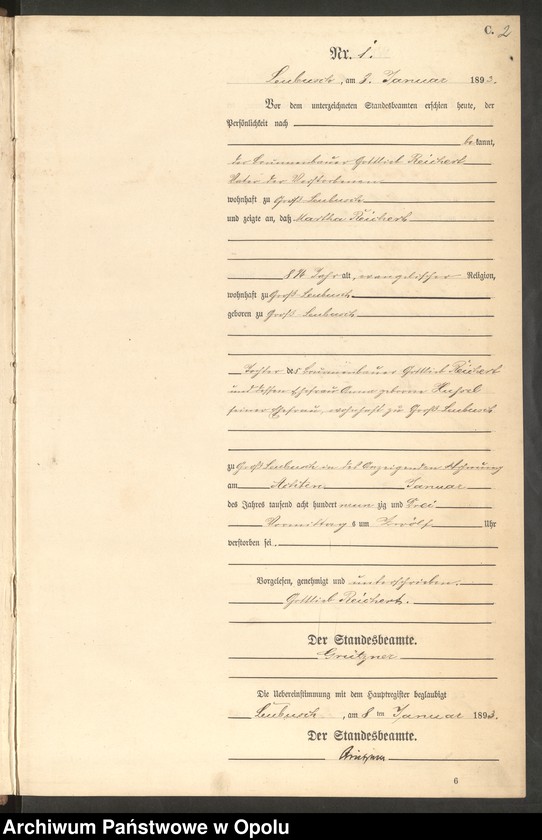 C. 2
Nr. 1.
Leubusch, am 8. Januar 1893.
Vor dem unterzeichneten Standesbeamten erschien heute, der
Persönlichkeit nach
bekannt,
der Brunnenbauer Gottlieb Reichert
Vater der Verstorbenen
wohnhaft zu Groß Leubusch
und zeigte an, daß Martha Reichert
Jahr alt, evangelischer Religion,
wohnhaft zu Groß Leubusch
geboren zu Groß Leubusch
Tochter des Brunnenbauer Gottlieb Reichert
und dessen Ehefrau Anna geborne
seiner Ehefrau, wohnhaft zu Groß Leubusch
zu Groß Leubusch in des Anzeigenden Wohnung
am Achten Januar
des Jahres tausend acht hundert neunzig und Drei
Vormittags um Zwölf Uhr
verstorben sei.
Vorgelesen, genehmigt und unterschrieben.
Gottlieb Reichert.
Der Standesbeamte.
Die Uebereinstimmung mit dem Hauptregister beglaubigt
Leubusch, am 8ten Januar 1893.
Der Standesbeamte.
6
Archiwum Państwowe w Opolu